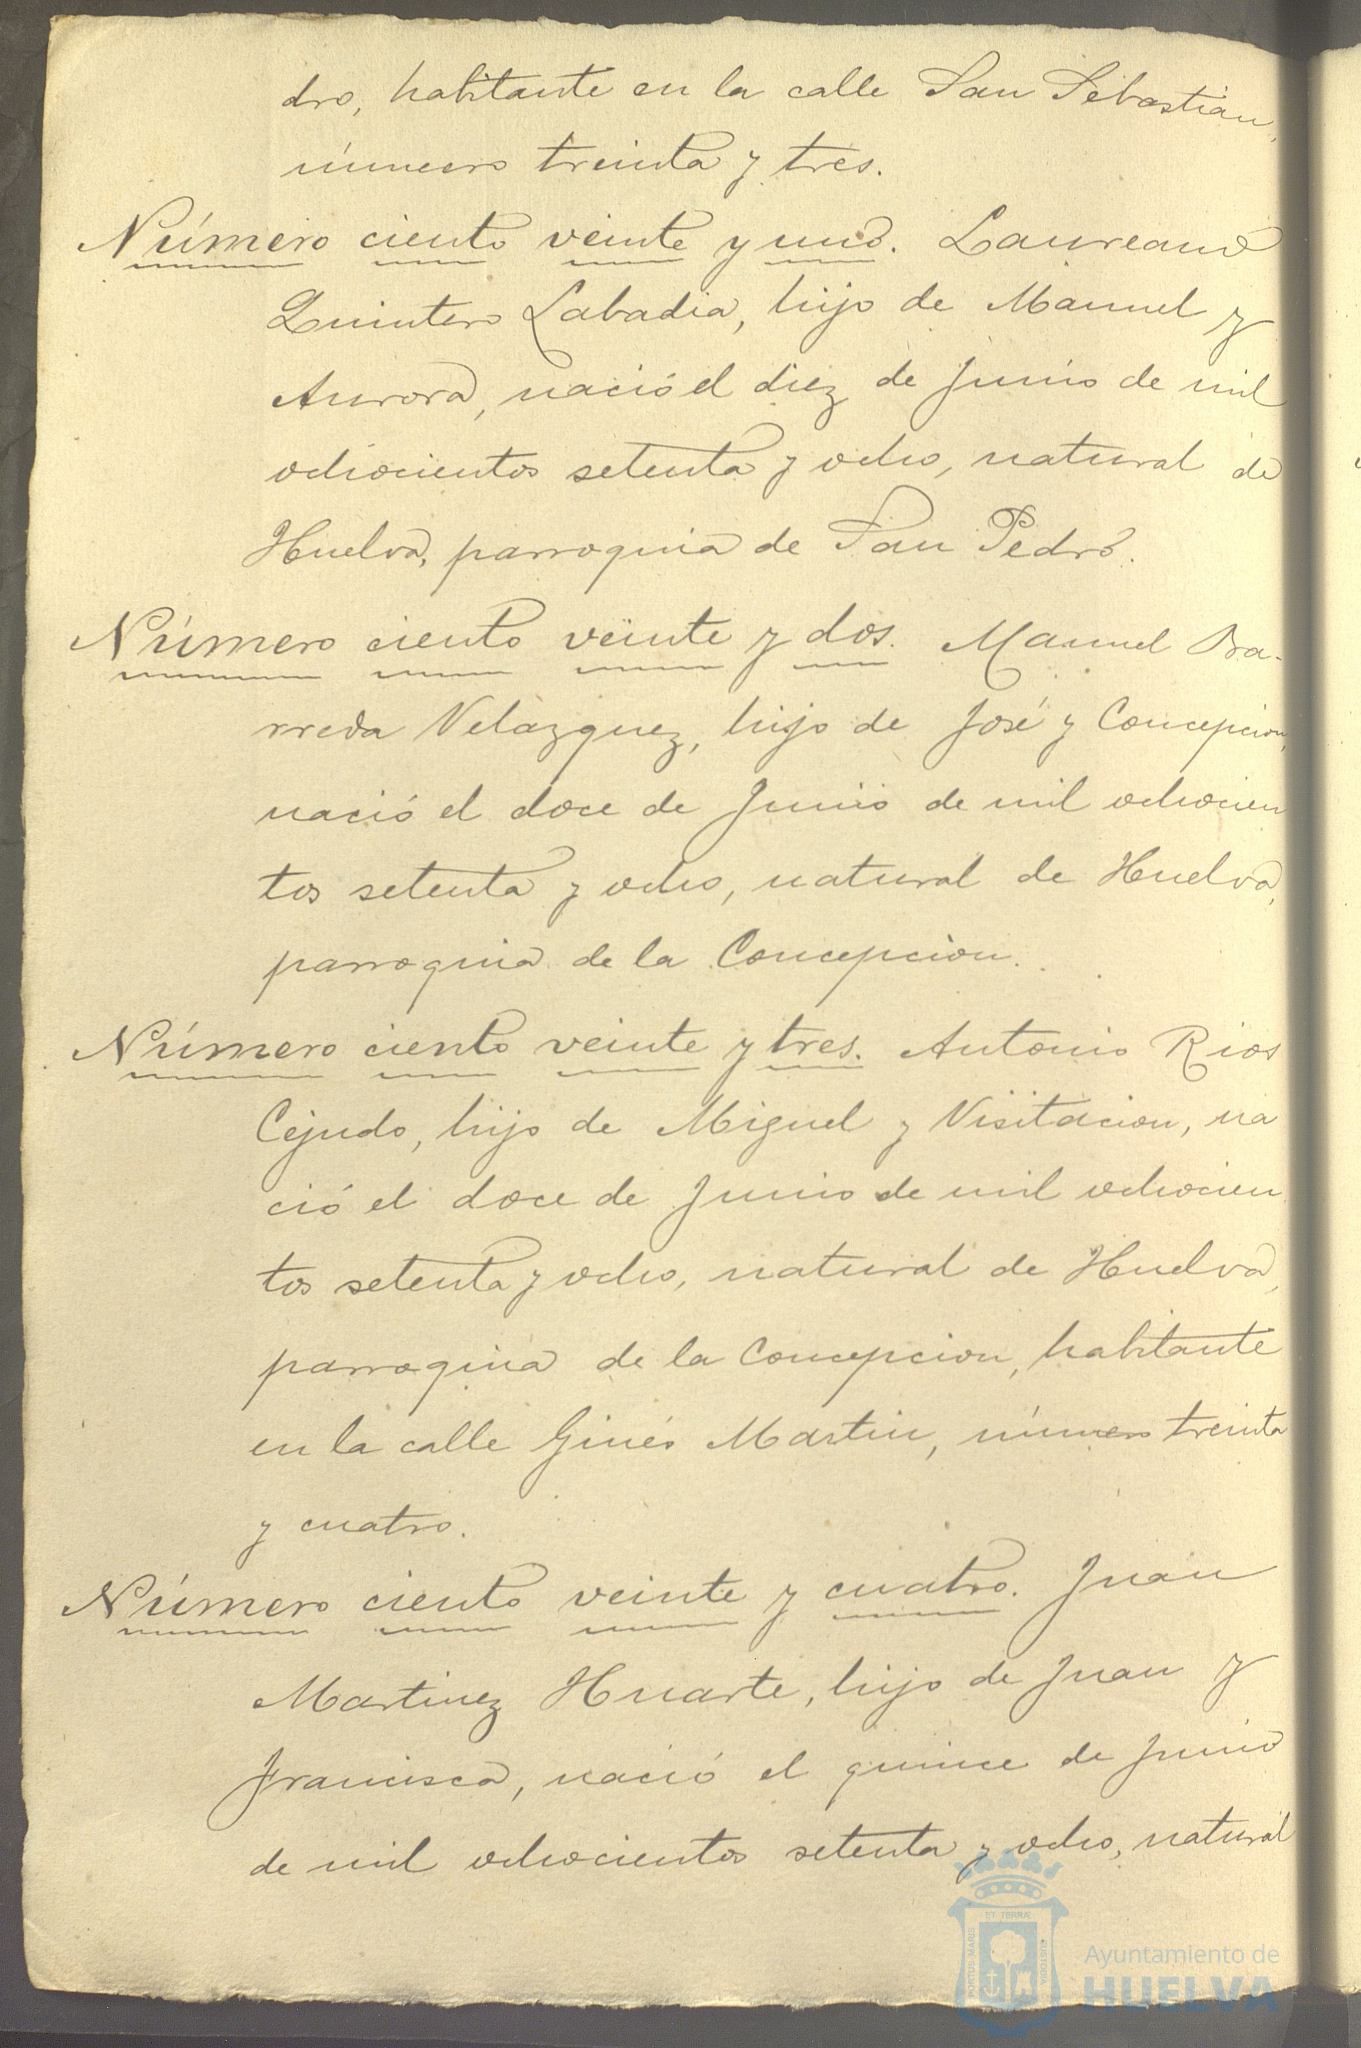 dro, habitante en la calle San Sebastián,
número treinta y tres.
Número ciento veinte y uno. Laureano
Quintero Labadia, hijo de Manuel y
Aurora, nació el diez de Junio de mil
ochocientos setenta y ocho, natural de
Huelva, parroquia de San Pedro.
Número ciento veinte y dos. Manuel Ba-
rreda Velazquez, hijo de José y Concepción,
nació el doce de Junio de mil ochocien
tos setenta y ocho, natural de Huelva,
parroquia de la Concepción.
Número ciento veinte y tres. Antonio Rios
Cejudo, hijo de Miguel y Visitacion, na
ció el doce de Junio de mil ochocien
tos setenta y ocho, natural de Huelva,
parroquia de la Concepcion, habitante
en la calle Ginés Martin, número treinta
y cuatro.
Número ciento veinte y cuatro. Juan
Martinez Huarte, hijo de Juan y
Francisca, nació el quince de Junio
de mil ochocientos setenta y ocho, natural
ET TERRÆ
PORTUS MARIS
CUSTODIA
Ayuntamiento de
HUELVA